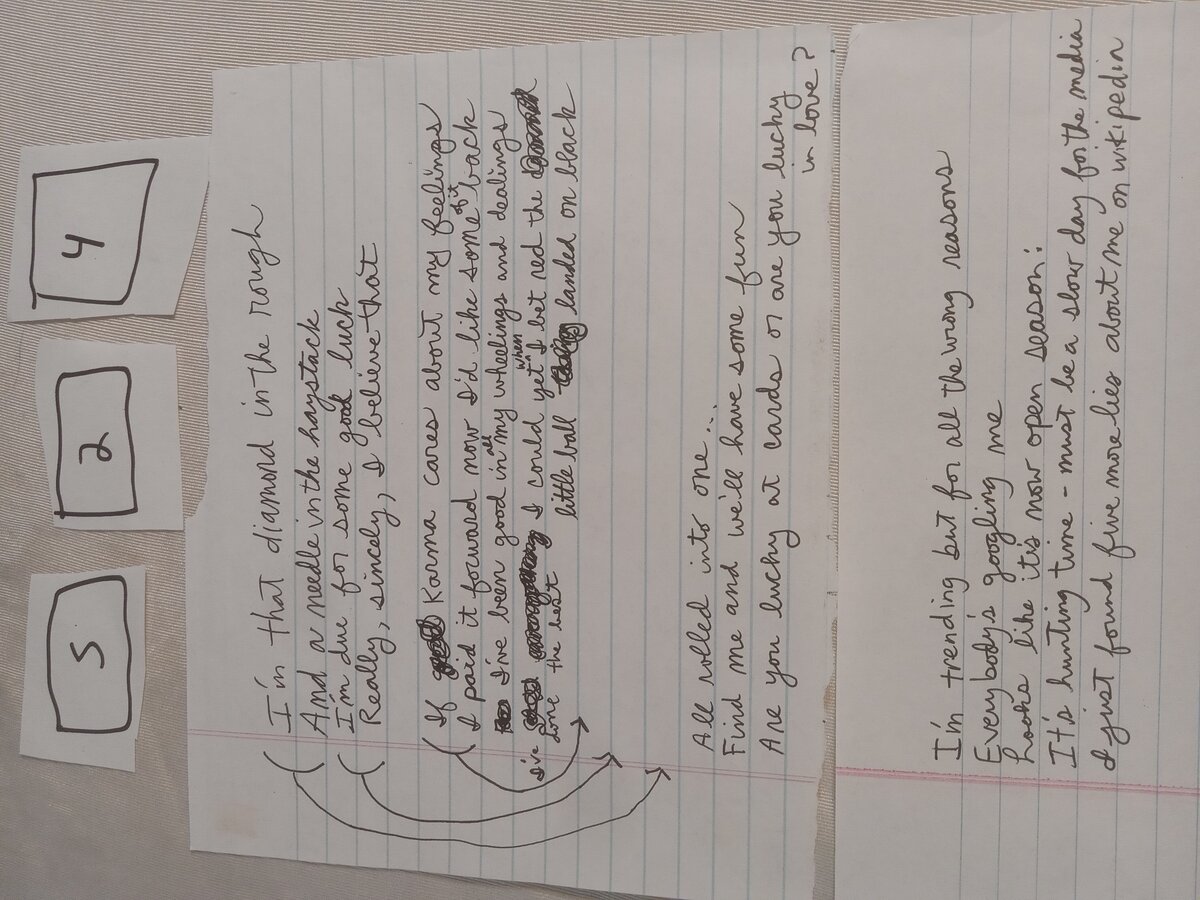 5
2
4
I'm that diamond in the rough
And a needle in the haystack
I'm due for some good luck
Really, sincely, I believe that
If Karma cares about my feelings
I paid it forward now I'd like some of it back
I've been good in all my wheelings and dealings
I've done the best I could yet when I bet red the
little ball landed on black
All rolled into one...
Find me and we'll have some fun
Are you lucky at cards or are you lucky
in love?
I'm trending but for all the wrong reasons
Everybody's googling me
Looks like it's now open season:
It's hunting time - must be a slow day for the media
I just found five more lies about me on wikipedia